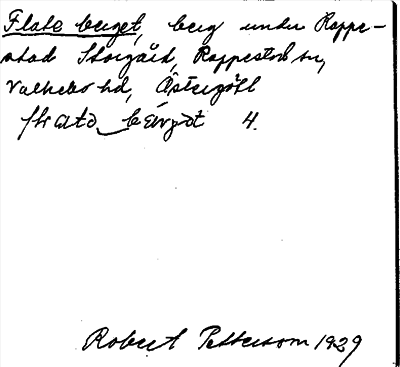 Flate berget, berg under Rappe-
stad Storgård, Rappestad sn,
Valkebo hd, Östergötl
flato bärgət 4.
Robert Petterson 1929